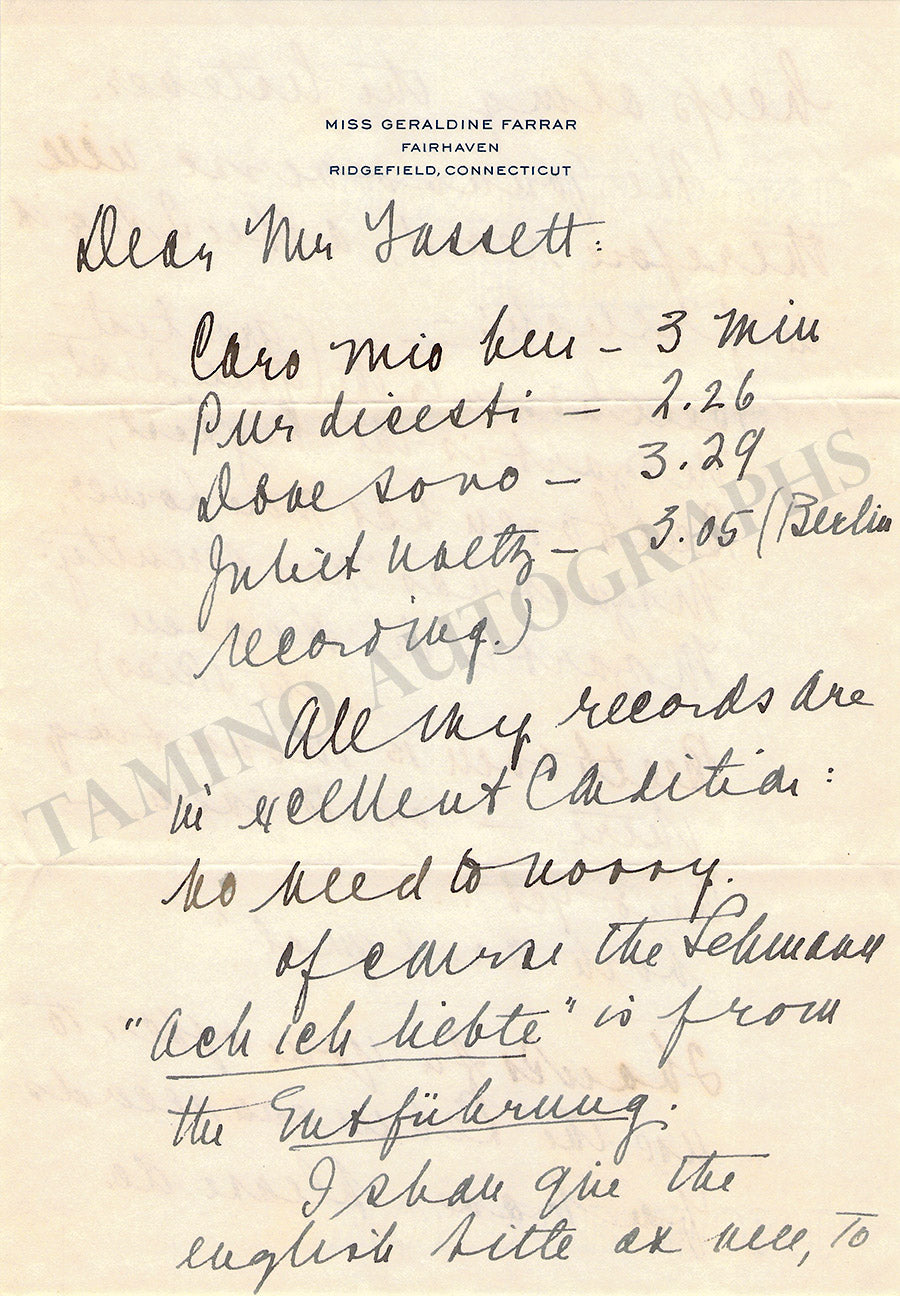 MISS GERALDINE FARRAR
FAIRHAVEN
RIDGEFIELD, CONNECTICUT
Dear Mr Fassett:
Caro mio ben – 3 min
Pur dicesti – 2.26
Dove sono – 3.29
Juliet Waltz – 3.05 (Berlin
recording.)
All my records are
in excellent condition:
no need to worry.
of course the Lehmann
"Ach ich liebte" is from
the Entführung.
I shall give the
english title as well, to
TAMINO AUTOGRAPHS